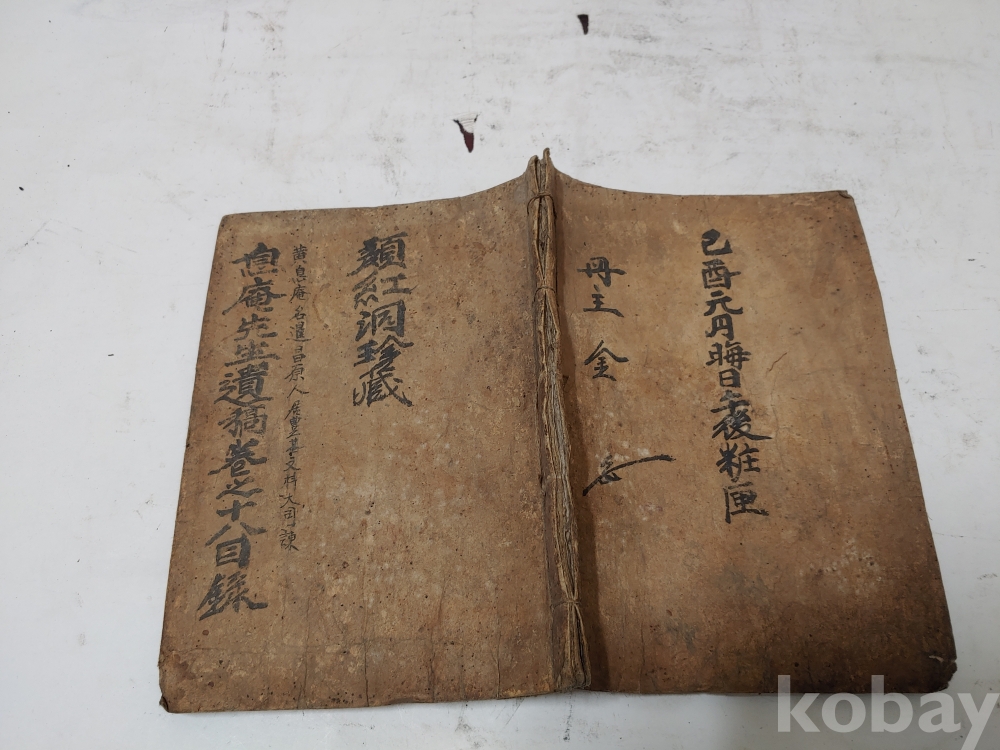 息庵先生遺稿卷之十八目錄
黃息庵名暹昌原人居豊基文科大司諫
類紅洞珍藏
冊主金
己酉元月晦日午後粧匣
kobay